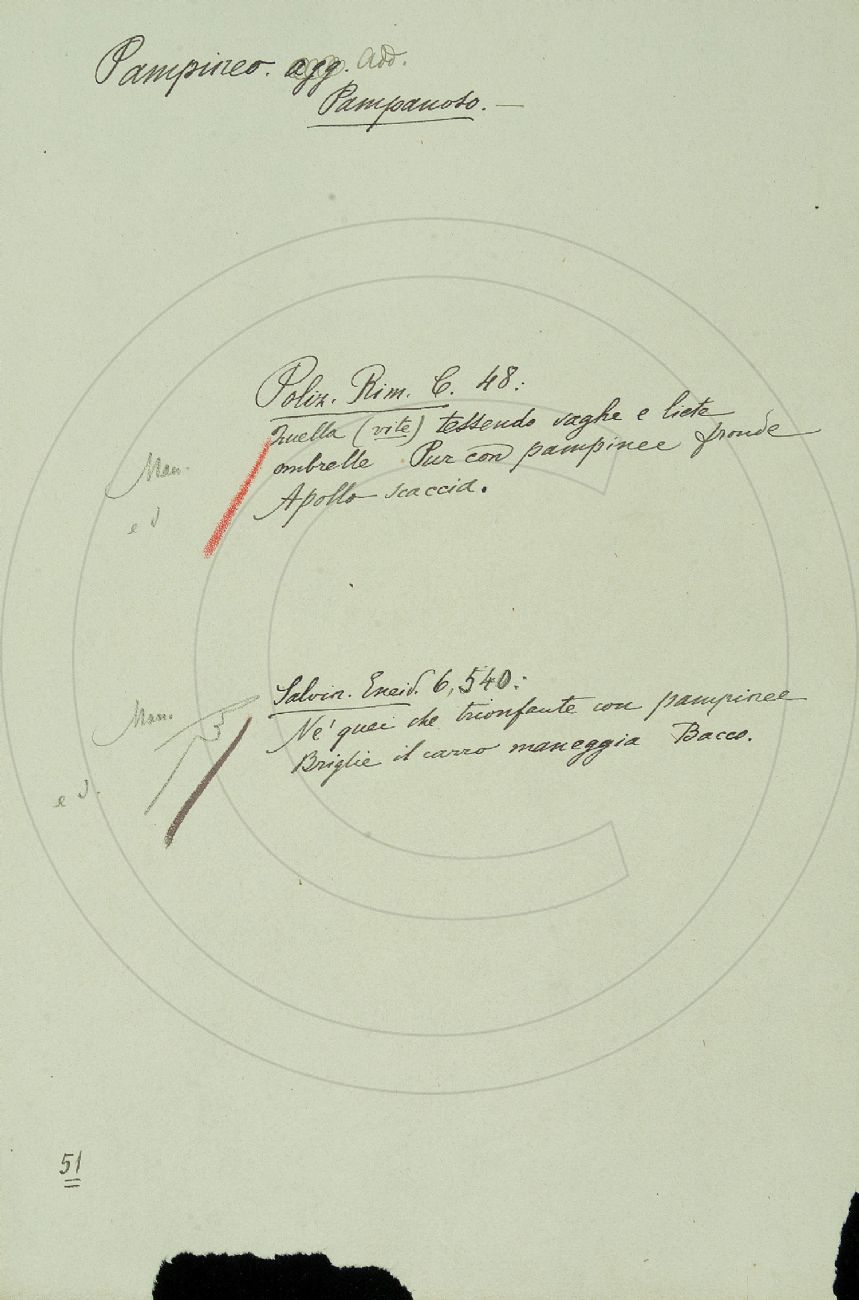 Pampineo. agg. Add.
Pampanoso. —
Poliz. Rim. C. 48:
Quella (vite) tessendo vaghe e liete
ombrelle Pur con pampinee fronde
Apollo scaccia.
Man.
e d
Salvin. Eneid. 6, 540:
Nè quei che trionfante con pampinee
Briglie il carro maneggia Bacco.
Man.
3
e d.
51